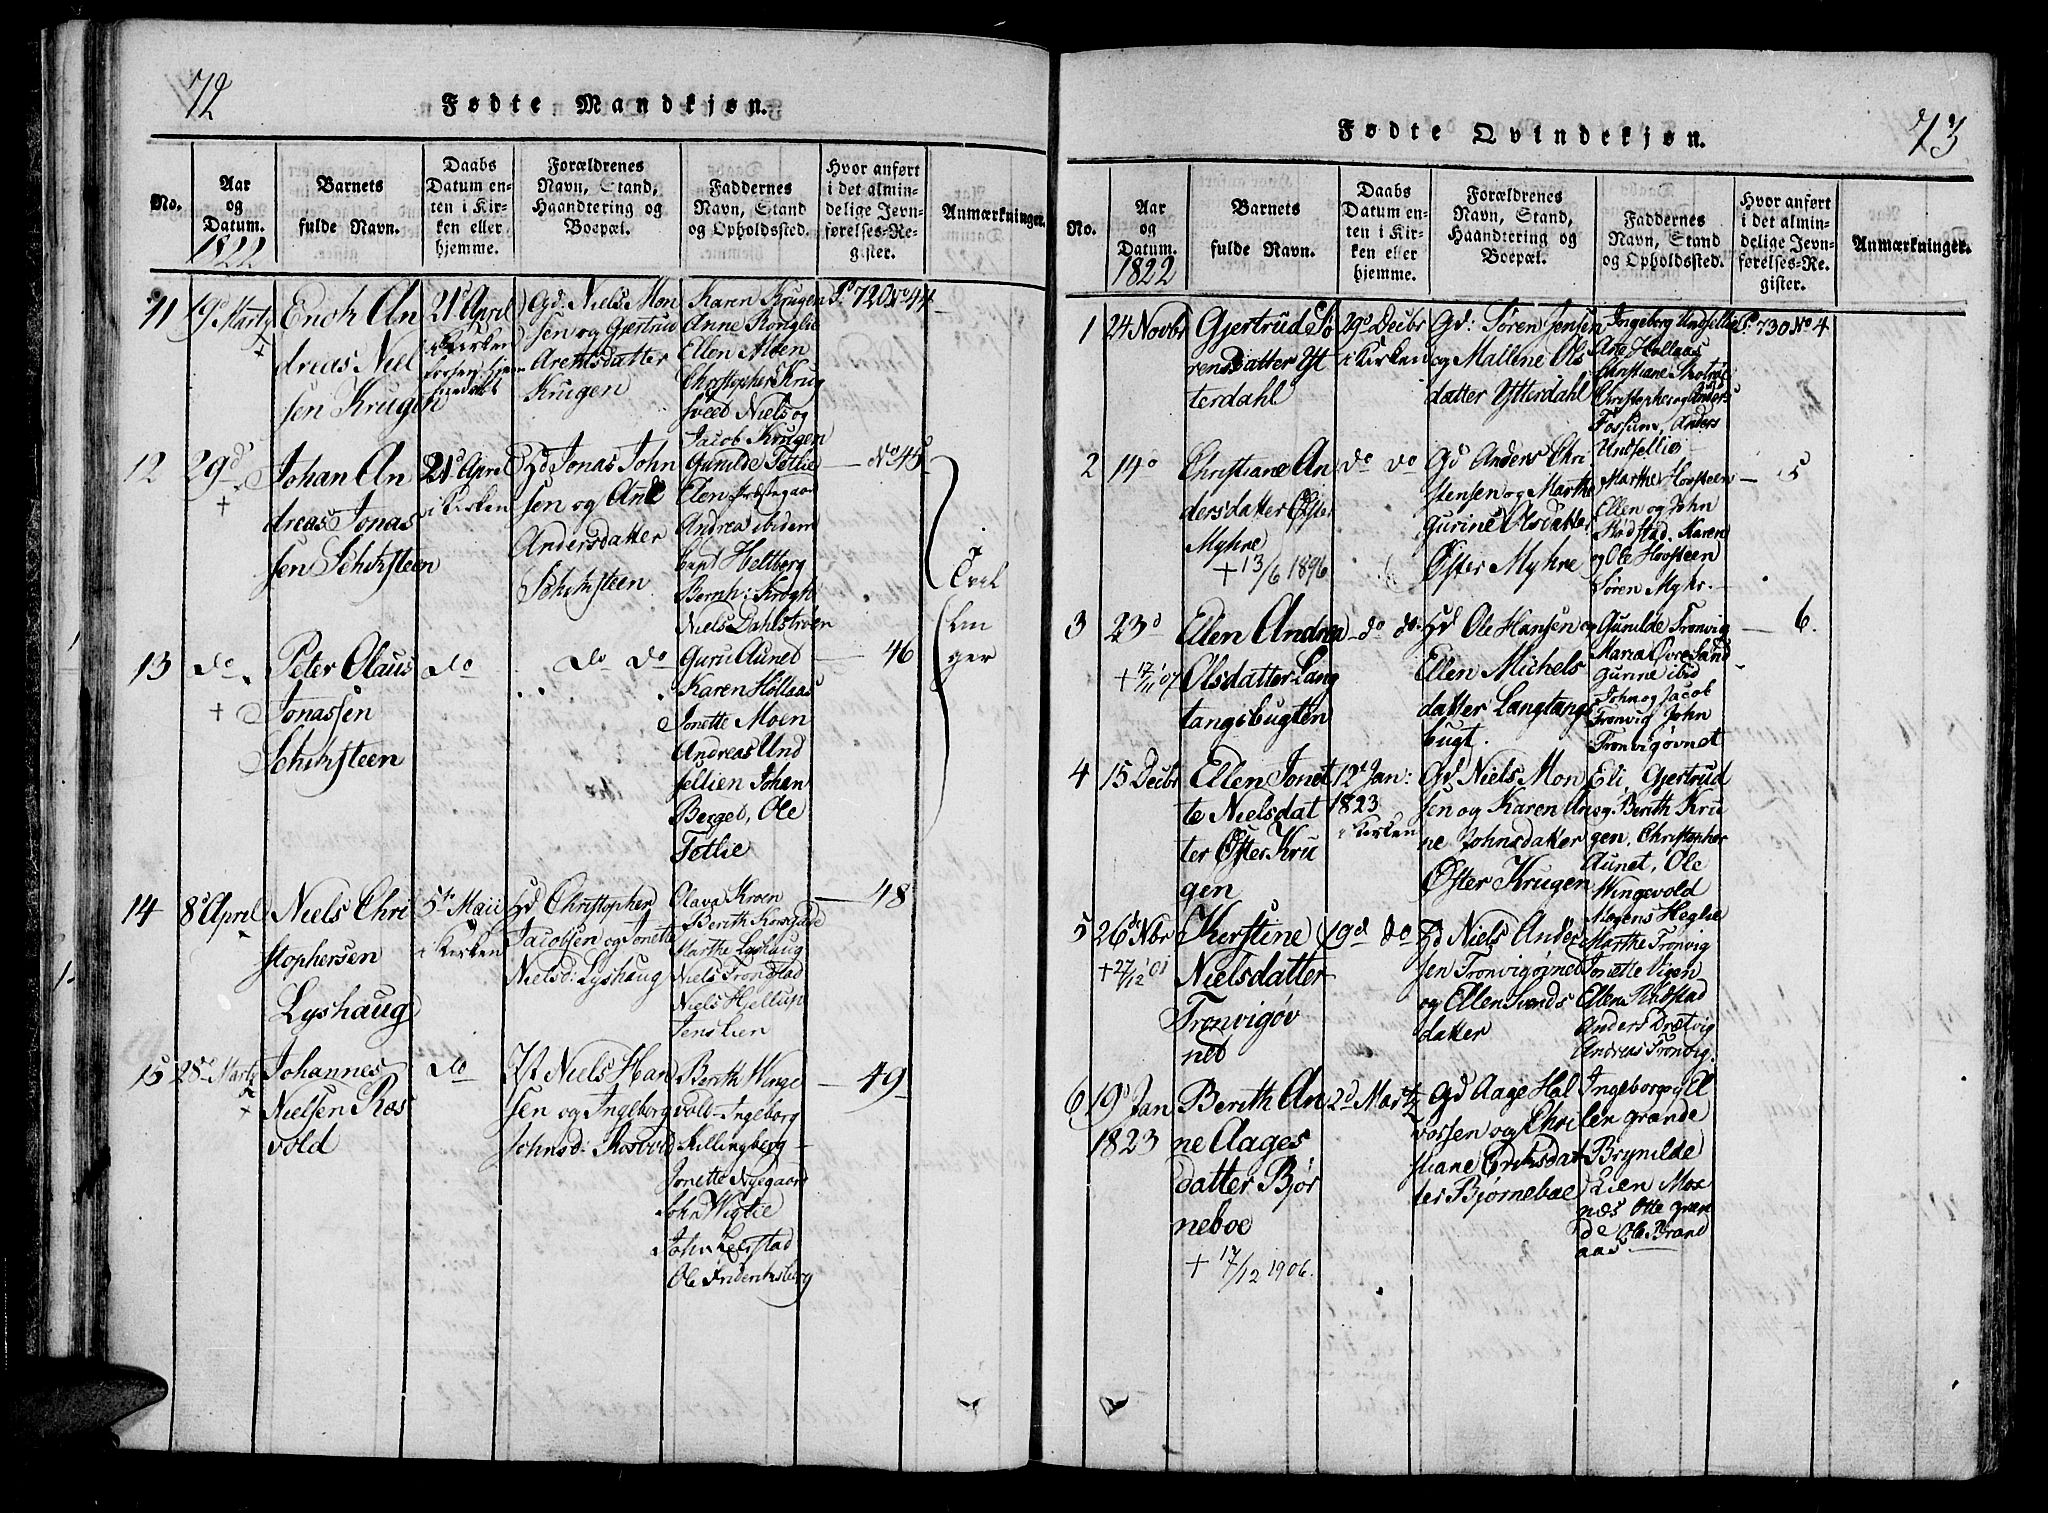 72
Fødte Mandkjøn.
No.
Aar
og
Datum.
1822
Barnets
fulde Navn.
Daabs
Datum en-
ten i Kir-
ken eller
hjemme.
Forældrenes
Navn, Stand,
Haandtering og
Boepæl.
Faddernes
Navn, Stand
og Opholdssted.
Hvor anført
i det almin-
delige Jevn-
førelses-Re-
gister.
Anmærkninger.
11
19d Martz
+
Erich An
dreas Niel
sen Krugen
21d April
i Kirken
Gd. Niels Mon
sen og Gjertrud
Arentsdatter
Krugen
Karen Krugen
Anne Ronglie
Ellen Alten
Christopher Krug
Sveed Niels og
Jacob Krugen
P. 720 No 44
12
29d
+
Johan An
dreas Jonas
sen Schiksteen
21d April
i Kirken
Hd Jonas John
sen og Ane
Andersdatter
Schiksteen
Gunilde Tetlie
Elen Præstegaar
Andrea ibidem
Capt Heltberg
Bernh: Krogh
Niels Dahlstrøen
No 45
Tvil
lin
ger
13
do
+
Peter Olaus
Jonassen
Schiksteen
do
do do
Guru Auned
Karen Hollaas
Jonette Moen
Andreas Und
sellien Johan
Berget, Ole
Tetlie
46
14
8d April
Niels Chri
stophersen
Lyshaug
5te Maii
i Kirken
Hd Christopher
Jacobsen og Jonette
Nielsd: Lyshaug
Olava Kroen
Berith Korsgade
Marthe Lyshaug
Niels Trondstad
Niels Hjellup
Jens Lien
48
15
28d Martz
+
Johannes
Nielsen Ros
vold
do
Niels Han
sen og Ingeborg
Johnsd: Rosvold
Berith Winge
vold Ingeborg
Killingberg
Jonette Nyegaard
John Wiglie
John Leirstad
Ole Fridrichsberg
49
73
Fødte Qvindekjøn.
No.
Aar
og
Datum.
1822
Barnets
fulde Navn.
Daabs
Datum en-
ten i Kir-
ken eller
hjemme.
Forældrenes
Navn, Stand,
Haandtering og
Boepæl.
Faddernes
Navn, Stand
og Opholdssted.
Hvor anført
i det almin-
delige Jevn-
førelses-Re-
gister.
Anmærkninger.
1
24 Novbr
Gjertrud Sø
rensdatter Yt
terdahl
29d Decbr
i Kirken
Gd: Søren Jensen
og Mallene Ols
datter Ytterdahl
Ingeborg Undsellie
Ane Hollaas
Christiane
Christopher og Anders
Fossum, Anders
Undsellie
P. 730 No 4
2
14d
Christiane An
dersdatter Øster
Myhre
+ 13/6 1896
do do
Gd Anders Chri
stensen og Marthe
Gurine Olsdatter
Øster Myhre
Marthe Hovsteen
Ellen og John
Rødstad. Karen
og Ole Hovsteen
Søren Myhr.
5
3
23d
+ 12/11 07
Ellen Andrea
Olsdatter Lang
tangsbugten
do do.
Hd Ole Hansen og
Ellen Michels
datter Langtangs
bugt.
Gunilde Tronvig
Maria Øvre Sand
Gurine ibid
John og Jacob
Tronvig John
Tronvigøvnet
6.
4
15 Decbr
Ellen Jonet
te Nielsdat
ter Øster Kru
gen
12d Jan:
1823
i Kirken
Gd Niels Mon
sen og Karen An
ne Johnsdatter
Øster Krugen
Eli, Gjertrud
og Berith Kru
gen, Christopher
Aunet, Ole
Wingevold
Mogens Heglie
5
26d Nbr
+ 27/12 01
Kerstine
Nielsdatter
Tronvigøv
net
19d do
Hd Niels Ander
sen Tronvigøvnet
og Ellen Svends
datter
Marthe Tronvig
Jonette Vigen
Ellen Rødstad
Anders Drætvig
Andreas Tronvig.
6
19d Jan
1823
Berith An
ne Aages
datter Bjør
neboe
+ 17/12 1906.
2d Martz
Gd Aage Hal
vorsen og Chri
stiane Erichsdat
ter Bjørneboe
Ingeborg og El
len grande
Brynilde
Lien Mox
næs Otte gran
de Ole Brand
aas